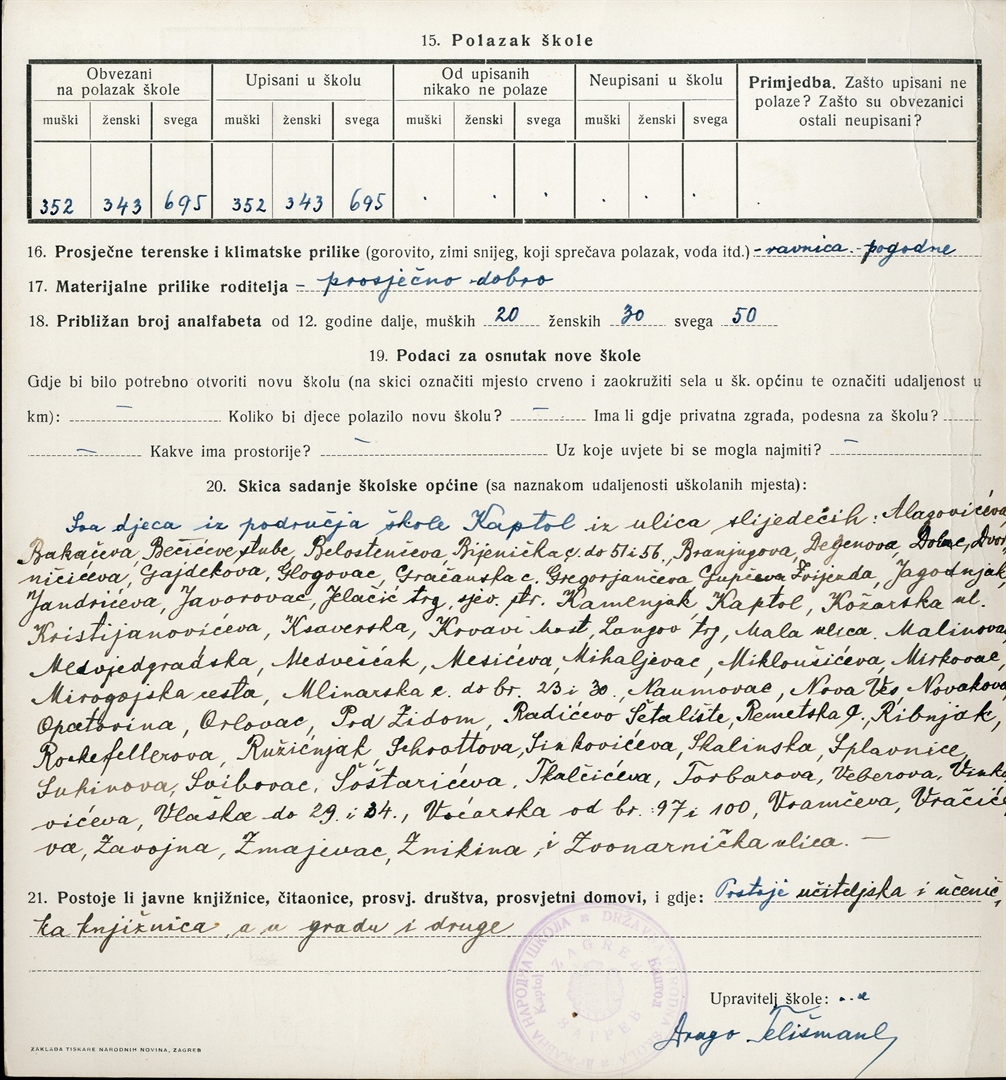 15. Polazak škole
Obvezani na polazak škole | Upisani u školu | Od upisanih nikako ne polaze | Neupisani u školu | Primjedba. Zašto upisani ne polaze? Zašto su obvezanici ostali neupisani?
muški | ženski | svega | muški | ženski | svega | muški | ženski | svega | muški | ženski | svega
352 | 343 | 695 | 352 | 343 | 695 | . | . | . | . | . | . | .
16. Prosječne terenske i klimatske prilike (gorovito, zimi snijeg, koji sprečava polazak, voda itd.) - ravnica - pogodne
17. Materijalne prilike roditelja - prosječno dobro
18. Približan broj analfabeta od 12. godine dalje, muških 20 ženskih 30 svega 50
19. Podaci za osnutak nove škole
Gdje bi bilo potrebno otvoriti novu školu (na skici označiti mjesto crveno i zaokružiti sela u šk. općinu te označiti udaljenost u
km): — Koliko bi djece polazilo novu školu? — Ima li gdje privatna zgrada, podesna za školu?
— Kakve ima prostorije? — Uz koje uvjete bi se mogla najmiti? —
20. Skica sadanje školske općine (sa naznakom udaljenosti uškolanih mjesta):
Sva djeca iz područja škole Kaptol iz ulica slijedećih: Alagovićeva
Bakačeva, Bečićeve stube, Belostenčeva, Bijenička c. do 51 i 56, Branjugova, Degenova, Dolac, Dvor
ničićeva, Gajdekova, Glogovac, Gračanska c. Gregorjančeva Gupčeva Zvijezda, Jagodnjak
Jandrićeva, Javorovac, Jelačić trg, sjev. str. Kamenjak, Kaptol, Kožarska ul.
Kristijanovićeva, Ksaverska, Krvavi most, Langov trg, Mala ulica. Malinova
Medvjedgradska, Medveščak, Mesićeva, Mihaljevac, Mikloušićeva, Mirkovac,
Mirogojska cesta, Mlinarska c. do br. 23 i 30., Naumovac, Nova Ves Novakova
Opatovina, Orlovac, Pod Zidom, Radićevo Šetalište, Remetska c., Ribnjak,
Rockefellerova, Ružičnjak, Schrottova, Sinkovićeva, Skalinska, Splavnice,
Sukinova, Svibovac, Šoštarićeva, Tkalčićeva, Torbarova, Veberova, Vinko
vićeva, Vlaška do 29. i 34., Voćarska od br. 97 i 100, Vramčeva, Vračiće
va, Zavojna, Zmajevac, Znikina, i Zvonarnička ulica. —
21. Postoje li javne knjižnice, čitaonice, prosvj. društva, prosvjetni domovi, i gdje: Postoji učiteljska i učenič
ka knjižnica, a u gradu i druge
DRŽAVNA NARODNA ŠKOLA Kaptol ZAGREB
Upravitelj škole:
Drago Telišman
ZAKLADA TISKARE NARODNIH NOVINA, ZAGREB